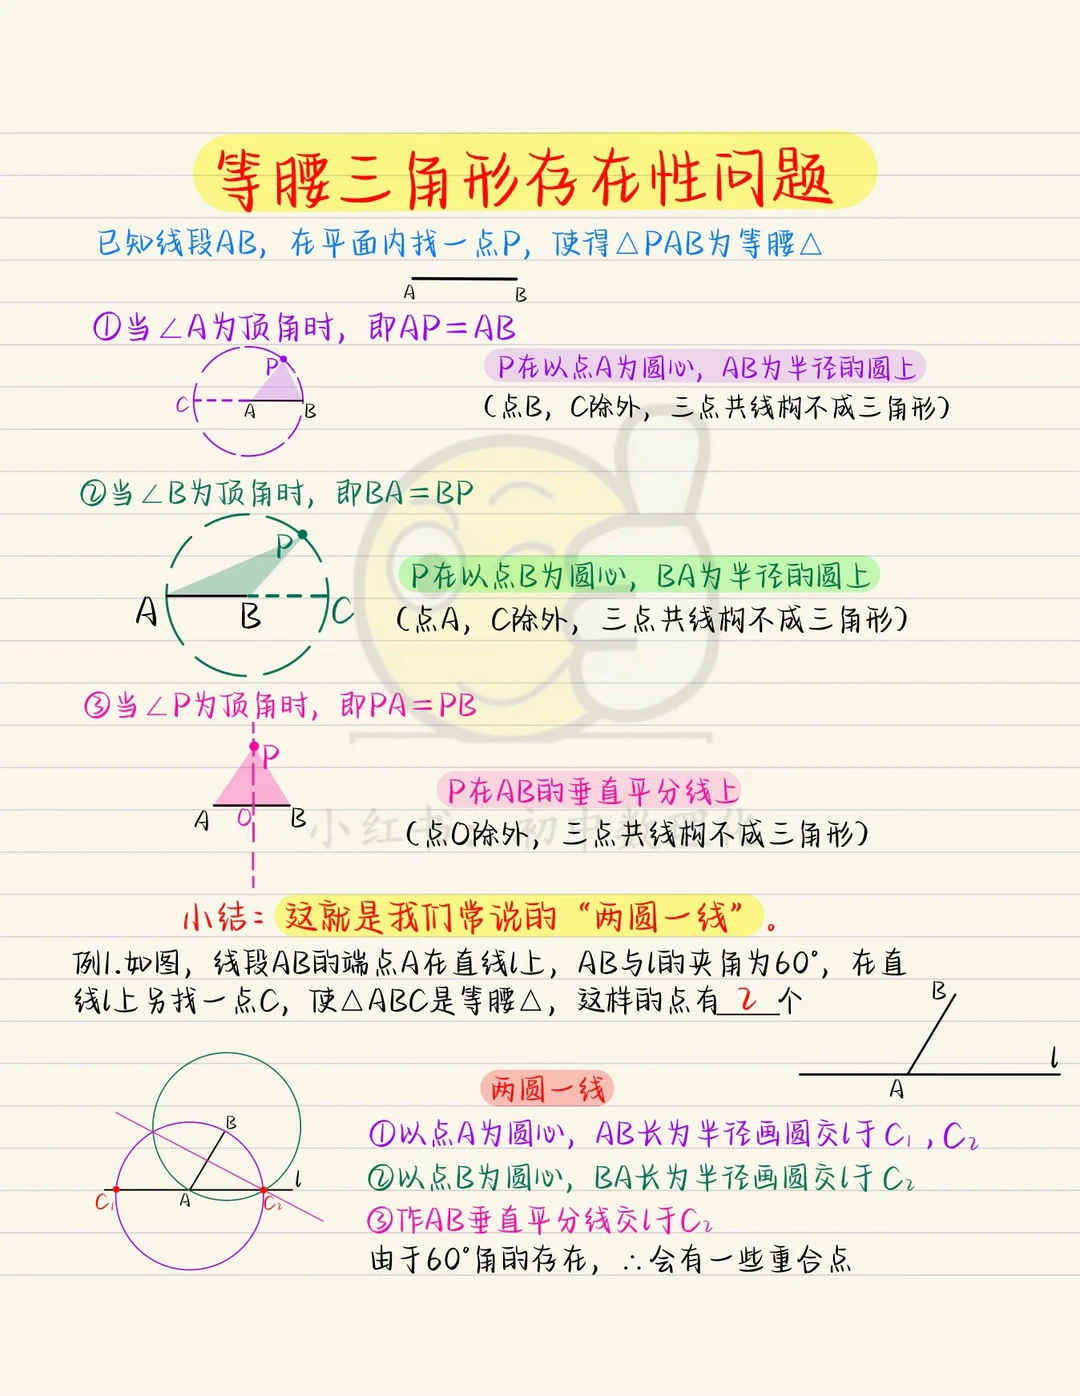 等腰三角形存在性问题
已知线段AB，在平面内找一点P，使得△PAB为等腰△
A B
①当∠A为顶角时，即AP=AB
P在以点A为圆心，AB为半径的圆上
（点B，C除外，三点共线构不成三角形）
P
C A B
②当∠B为顶角时，即BA=BP
P在以点B为圆心，BA为半径的圆上
（点A，C除外，三点共线构不成三角形）
P
A B C
③当∠P为顶角时，即PA=PB
P
A O B
P在AB的垂直平分线上
（点O除外，三点共线构不成三角形）
小红书：初中数理化
小结：这就是我们常说的“两圆一线”。
例1.如图，线段AB的端点A在直线l上，AB与l的夹角为60°，在直
线l上另找一点C，使△ABC是等腰△，这样的点有 2 个
B
l
A
两圆一线
①以点A为圆心，AB长为半径画圆交l于C₁，C₂
②以点B为圆心，BA长为半径画圆交l于C₂
③作AB垂直平分线交l于C₂
由于60°角的存在，∴会有一些重合点
B
l
C₁ A C₂